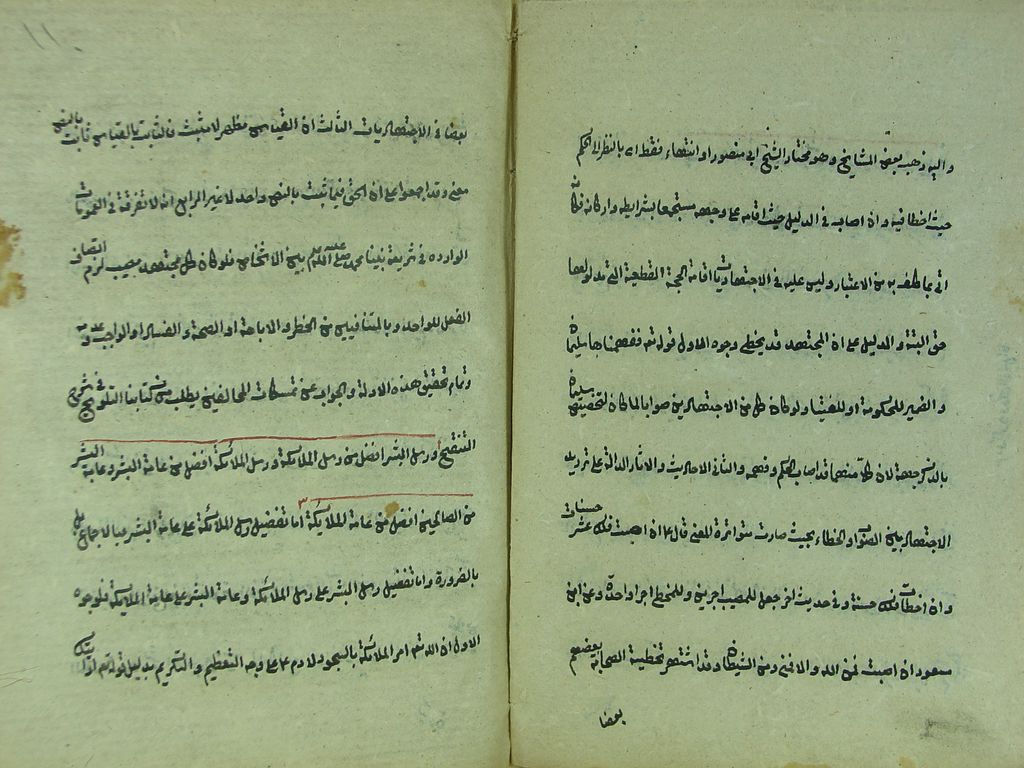 واليه ذهب بعض المشايخ وهو مختار الشيخ ابي منصور او انتهاء فقط اى بالنظر الى الحكم
حيث اخطا فيه وان اصاب في الدليل حيث اقامه على وجهه مستجمعا بشرايطه واركانه فكان
اتى بما كلف به من الاعتبار وليس عليه في الاجتهاديات اقامة الحجة القطعية التى مدلولها
حق البتة والدليل على ان المجتهد قد يخطى وجوه الاول قوله تع ففهمناها سليمان
والضمير للحكومة او للفتيا ولو كان كل من الاجتهادين صوابا لما كان لتخصيص سليمان
بالذكر جهة لان كلا منهما قد اصاب الحكم وفهمه والثانى الاحاديث والاثار الدالة على ترديد
الاجتهاد بين الصواب والخطاء بحيث صارت متواترة المعنى قال ٤م ان اصبت فلك عشر حسنات
وان اخطات فلك حسنة وفي حديث اخر جعل للمصيب اجرين وللمخطى اجرا واحدا وعن ابن
مسعود ان اصبت فمن الله والا فمنى ومن الشيطان وقد اشتهر تخطية الصحابة بعضهم
بعضا
١١
بعضا في الاجتهاديات الثالث ان القياس مظهر لا مثبت فالثابت بالقياس ثابت بالنص
معنى وقد اجمعوا على ان الحق فيما ثبت بالنص واحد لا غير الرابع انه لا تفرقة في العمومات
الواردة في شريعة نبينا محمد صلى الله عليه بين الاشخاص فلو كان كل مجتهد مصيب لزم اتصاف
الفعل الواحد بالمتنافيين من الحظر والاباحة او الصحة والفساد او الواجب وعدمه
وتمام تحقيق هذه الادلة والجواب عن تمسكات المخالفين يطلب من كتابنا التلويح في شرح
التنقيح ورسل البشر افضل من رسل الملائكة ورسل الملائكة افضل من عامة البشر وعامة البشر
من الصالحين افضل من عامة الملايكة اما تفضيل رسل الملائكة على عامة البشر فبالاجماع بل
بالضرورة واما تفضيل رسل البشر على رسل الملائكة وعامة البشر على عامة الملايكة فلوجوه
الاول ان الله تع امر الملائكة بالسجود لادم ٤م على وجه التعظيم والتكريم بدليل قوله تع ارايتك